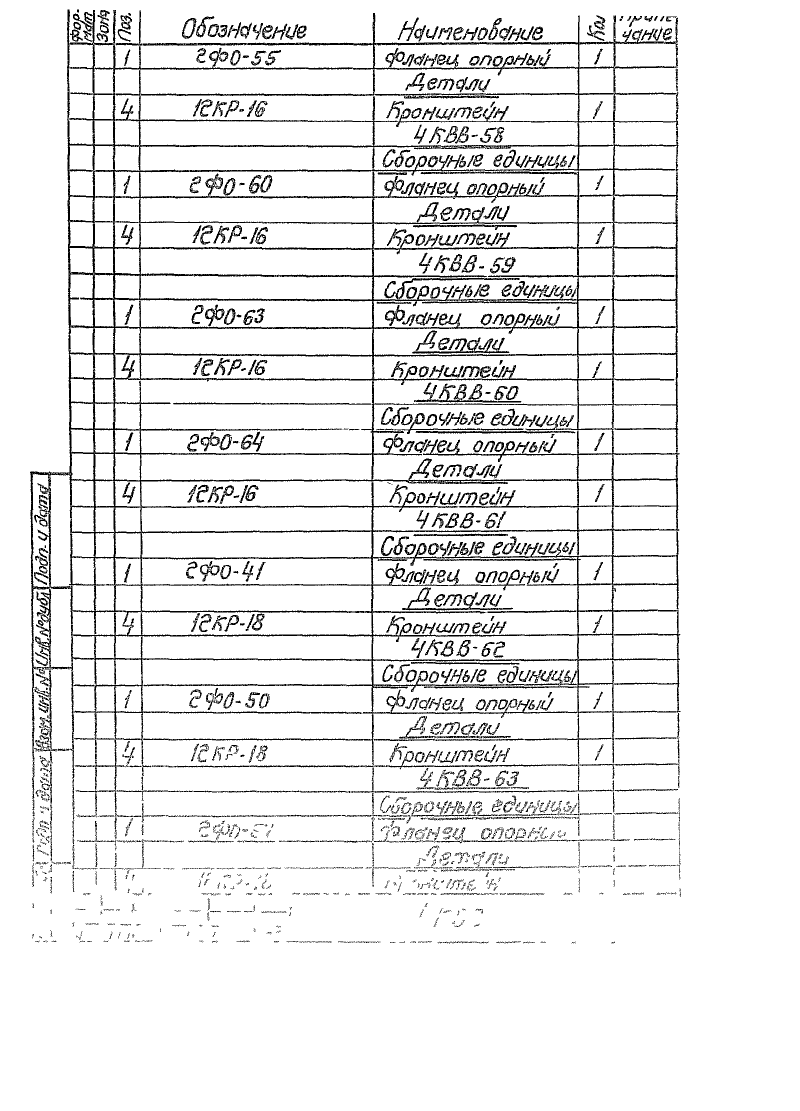 Фор-мат Зона Поз. Обозначение Наименование Кол Приме-чание
1 2ФО-55 Фланец опорный 1
Детали
4 12КР-16 Кронштейн 1
4КВВ-58
Сборочные единицы
1 2ФО-60 Фланец опорный 1
Детали
4 12КР-16 Кронштейн 1
4КВВ-59
Сборочные единицы
1 2ФО-63 Фланец опорный 1
Детали
4 12КР-16 Кронштейн 1
4КВВ-60
Сборочные единицы
1 2ФО-64 Фланец опорный 1
Детали
4 12КР-16 Кронштейн 1
4КВВ-61
Сборочные единицы
1 2ФО-41 Фланец опорный 1
Детали
4 12КР-18 Кронштейн 1
4КВВ-62
Сборочные единицы
1 2ФО-50 Фланец опорный 1
Детали
4 12КР-18 Кронштейн 1
4КВВ-63
Сборочные единицы
1 2ФО-51 Фланец опорный
Детали
Подп. и дата
Инв.№дубл
Взам.инв.№
Подп. и дата